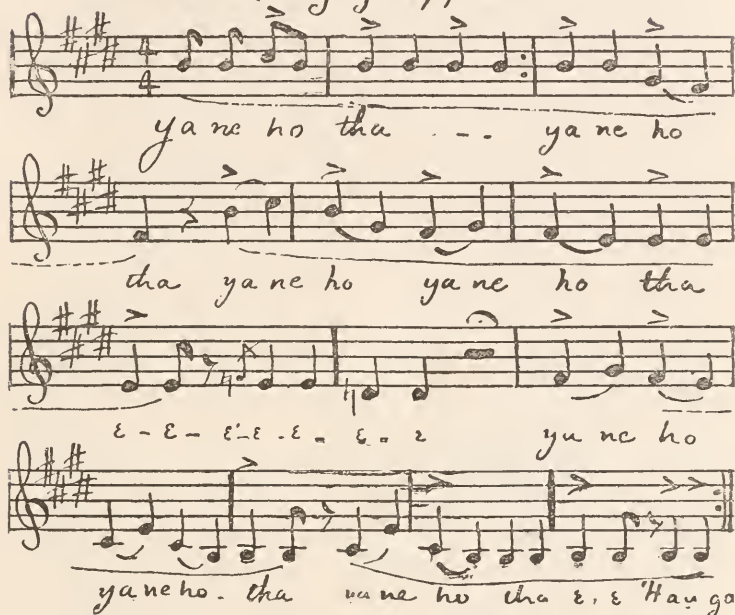 ya ne ho tha - - - ya ne ho
tha ya ne ho ya ne ho tha
ε - ε - ε'- ε . ε . ε . ε ya ne ho
ya ne ho . tha ne ho tha ε . ε 'Hau go